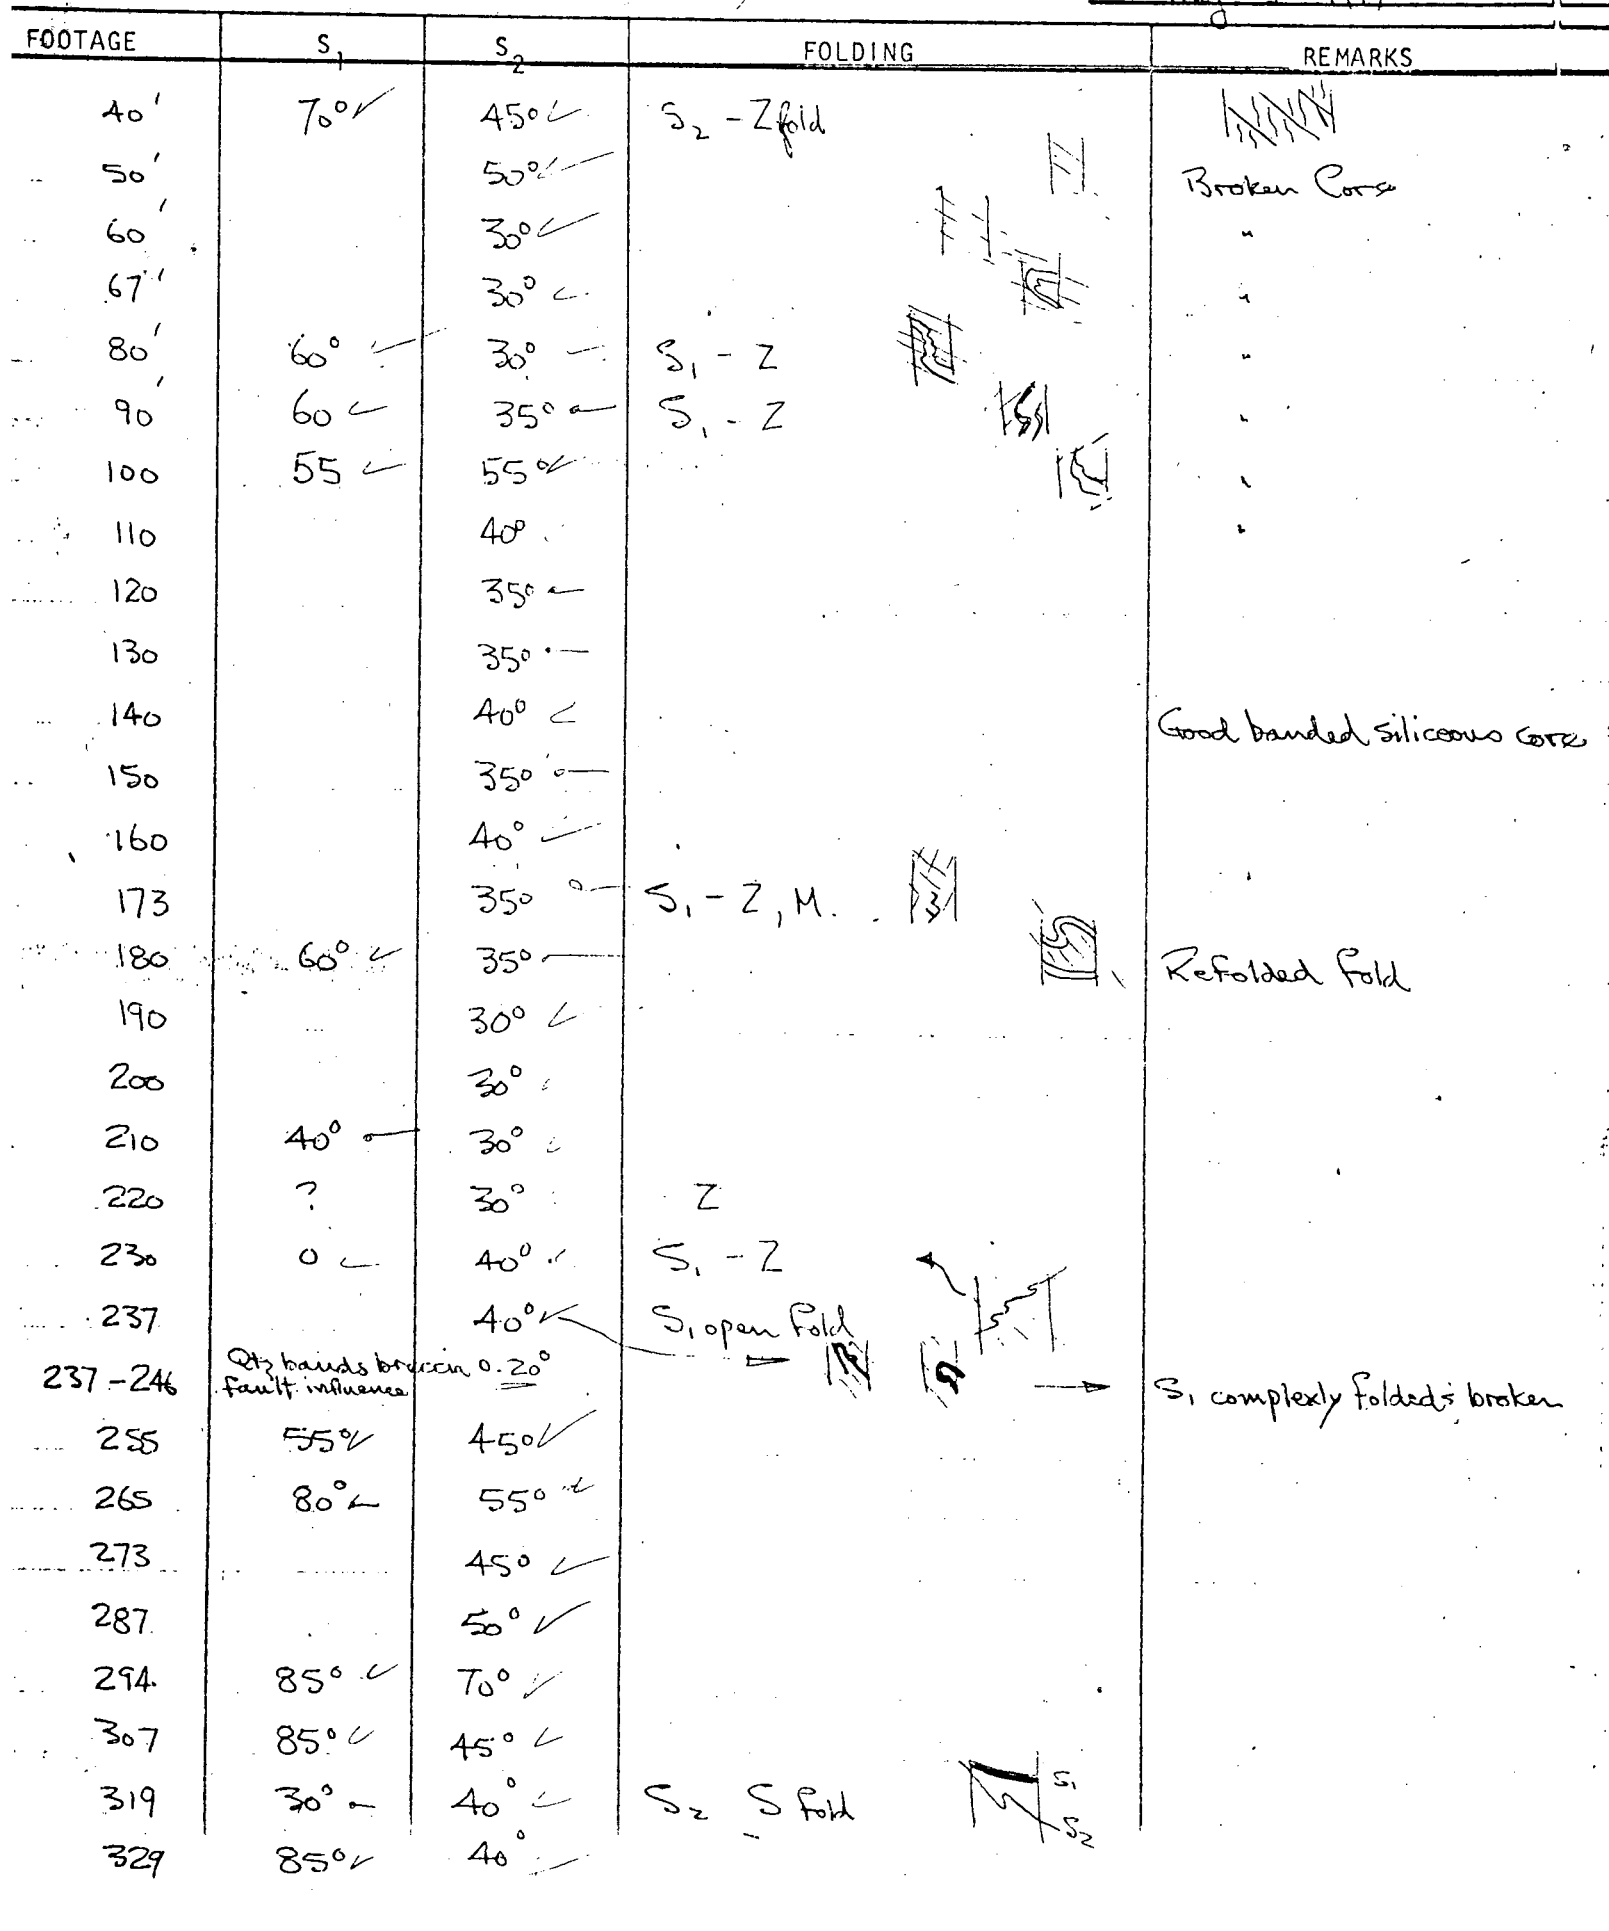 FOOTAGE S1 S2 FOLDING REMARKS
40' 70° 45° S2 - Z fold
50' 50° Broken Core
60' 30° "
67' 30° "
80' 60° 30° S1 - Z "
90' 60 35° S1 - Z "
100 55 55° "
110 40° "
120 35°
130 35°
140 40° Good banded siliceous core
150 35°
160 40°
173 35° S1 - Z, M.
180 60° 35° Refolded fold
190 30°
200 30°
210 40° 30°
220 ? 30° Z
230 0 40° S1 - Z
237 40° S1 open fold
237-246 Qtz bands breccia 0.20°
fault influence S1 complexly folded & broken
255 55° 45°
265 80° 55°
273 45°
287 50°
294 85° 70°
307 85° 45°
319 30° 40° S2 S fold S1
S2
329 85° 40°